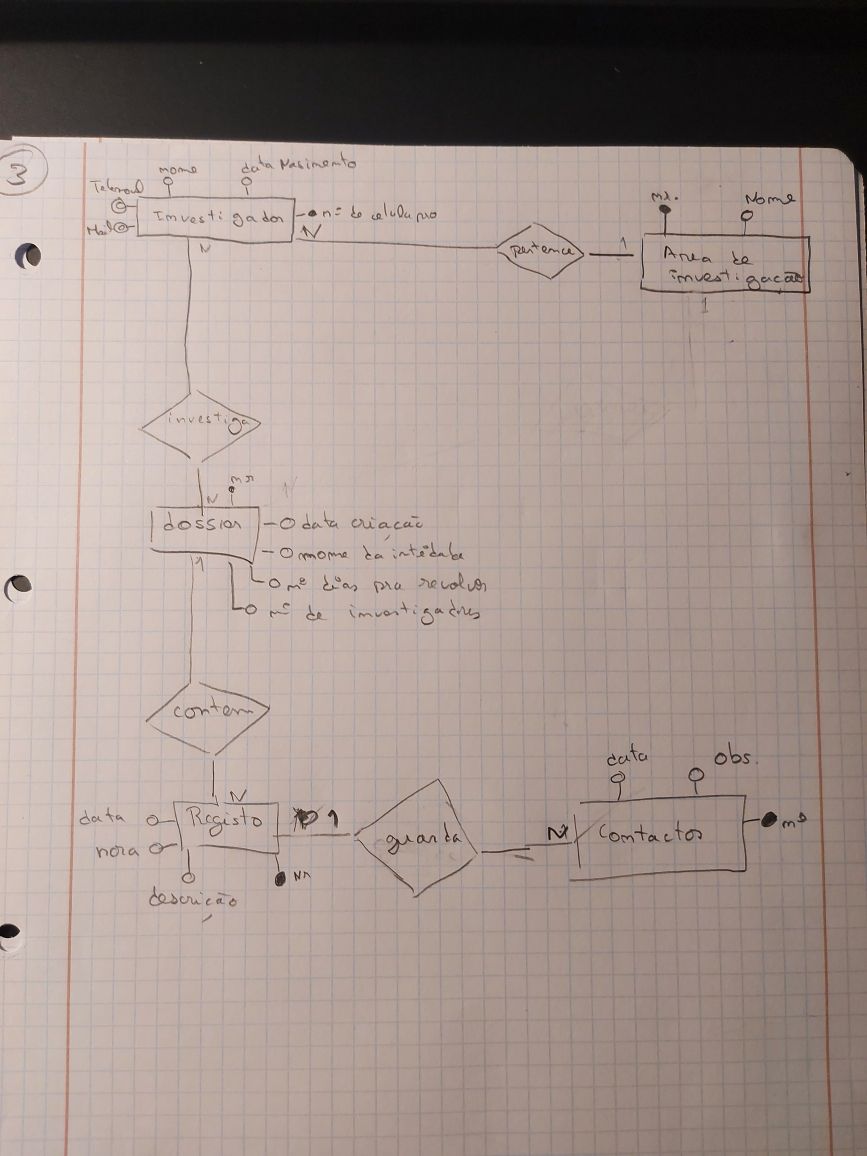 3
nome
data Nasimento
Mail
Investigador
nº de celula pro
N
N
pertence
1
nr.
Nome
Area de
investigação
1
investiga
N
nr
N
dossier
data criação
nome da intêdade
nº dias pra resolver
nº de investigadores
1
contem
N
data
Registo
1
hora
descrição
Nr
guarda
data
obs.
N
Contactos
nº